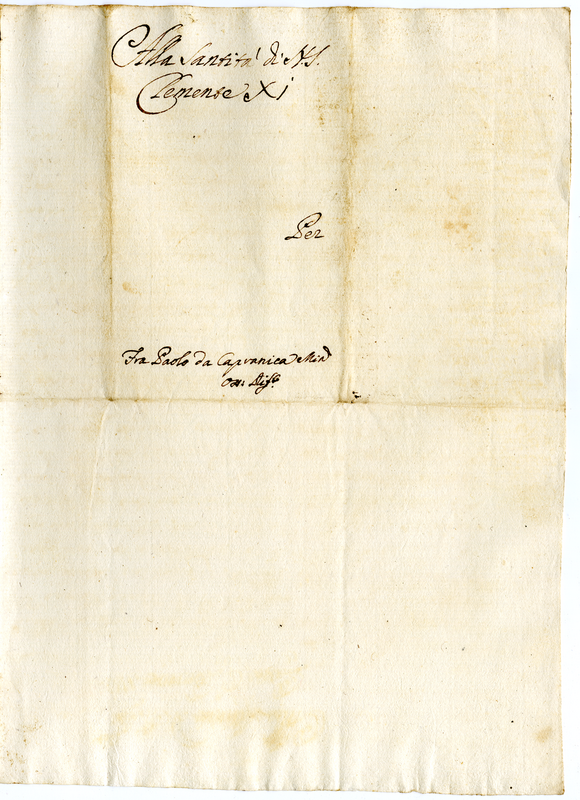 Alla Santità di N.S.
Clemente XI
Per
Fra Paolo da Capranica Min